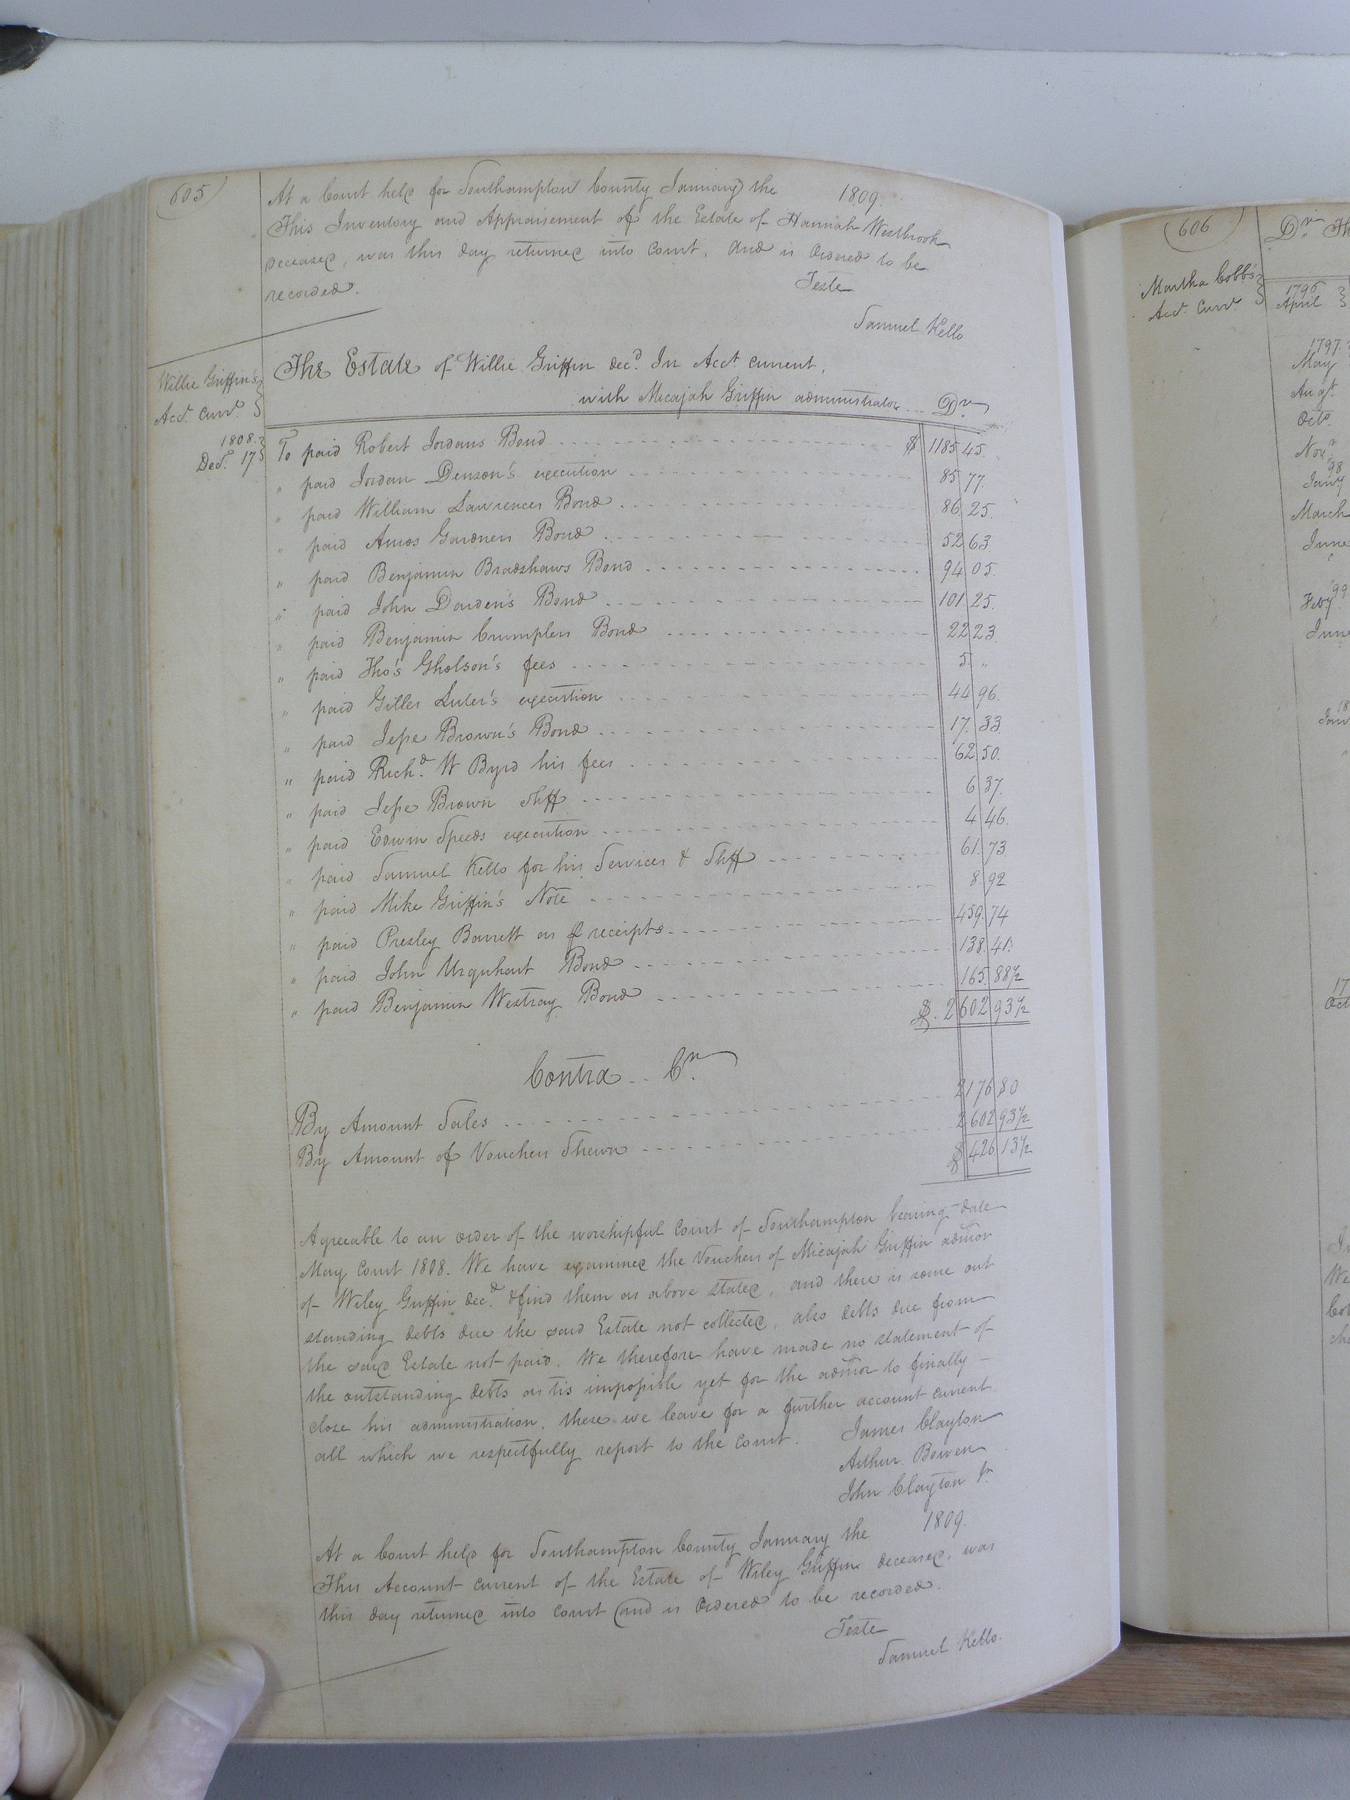 605
At a Court held for Southampton County January the 1809.
This Inventory and Appraisement of the Estate of Hannah Westbrook
deceased, was this day returned into Court, and is Ordered to be
recorded.
Teste
Samuel Kello
Willie Griffin's
Acct. Currt.
The Estate of Willie Griffin decd. In Acct current,
with Micajah Griffin administrator ... Dr
1808.
Decr. 17
To paid Robert Jordans Bond $ 1185 45.
" paid Jordan Denson's execution 85 77
" paid William Lawrences Bond 86 25.
" paid Amos Gardners Bond 52 63.
" paid Benjamin Bradshaws Bond 94 05.
" paid John Darden's Bond 101 25.
" paid Benjamin Crumplers Bond 22 23.
" paid Tho's Gholson's fees 5 "
" paid Gilles Luter's execution 44 96.
" paid Jesse Brown's Bond 17. 33.
" paid Richd. W Byrd his fees 62 50.
" paid Jesse Brown Shff 6 37.
" paid Edwin Speeds execution 4 46.
" paid Samuel Kello for his Services & Shff 61. 73
" paid Mike Griffin's Note 8. 92
" paid Presley Barrett as p receipts 459. 74
" paid John Urquhart Bond 138. 41.
" paid Benjamin Westray Bond 165 88½
$. 2602 93½
Contra .. Cr.
By Amount Sales 2176 80
By Amount of Vouchers Shewn 2602 93½
$ 426 13½
Agreeable to an order of the worshipful Court of Southampton bearing date
May Court 1808. We have examined the Vouchers of Micajah Griffin admor
of Wiley Griffin decd. & find them as above stated, and there is some out
standing debts due the said Estate not collected, also debts due from
the said Estate not paid. We therefore have made no statement of
the outstanding debts as tis impossible yet for the admor to finally
close his administration, these we leave for a further account current
all which we respectfully report to the Court.
James Clayton
Arthur Bowen
John Clayton Jr.
At a Court held for Southampton County January the 1809.
This Account current of the Estate of Wiley Griffin deceased, was
this day returned into Court and is Ordered to be recorded.
Teste
Samuel Kello.
606
Martha Cobb's
Acct. Currt.
Dr Th
1796
April
1797
May
Augt.
Octo.
Novr
98
Jany
March
June
99
Feby.
June
18
17
We